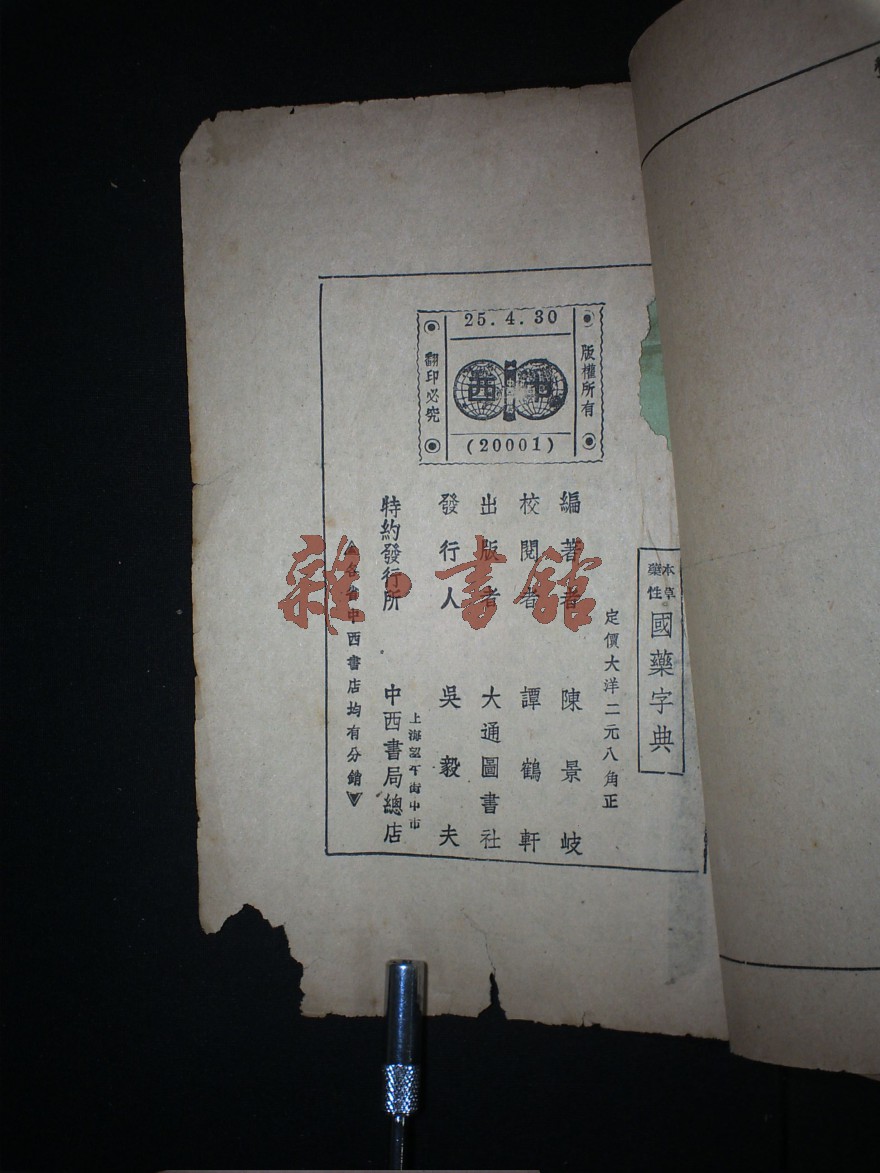 本草
藥性
國藥字典
定價大洋二元八角正
編著者 陳景岐
校閱者 譚鶴軒
出版者 大通圖書社
發行人 吳毅夫
上海望平街中市
特約發行所 中西書局總店
▲各省中西書店均有分銷▼
版權所有
25.4.30
中西
(20001)
翻印必究
雜·書館